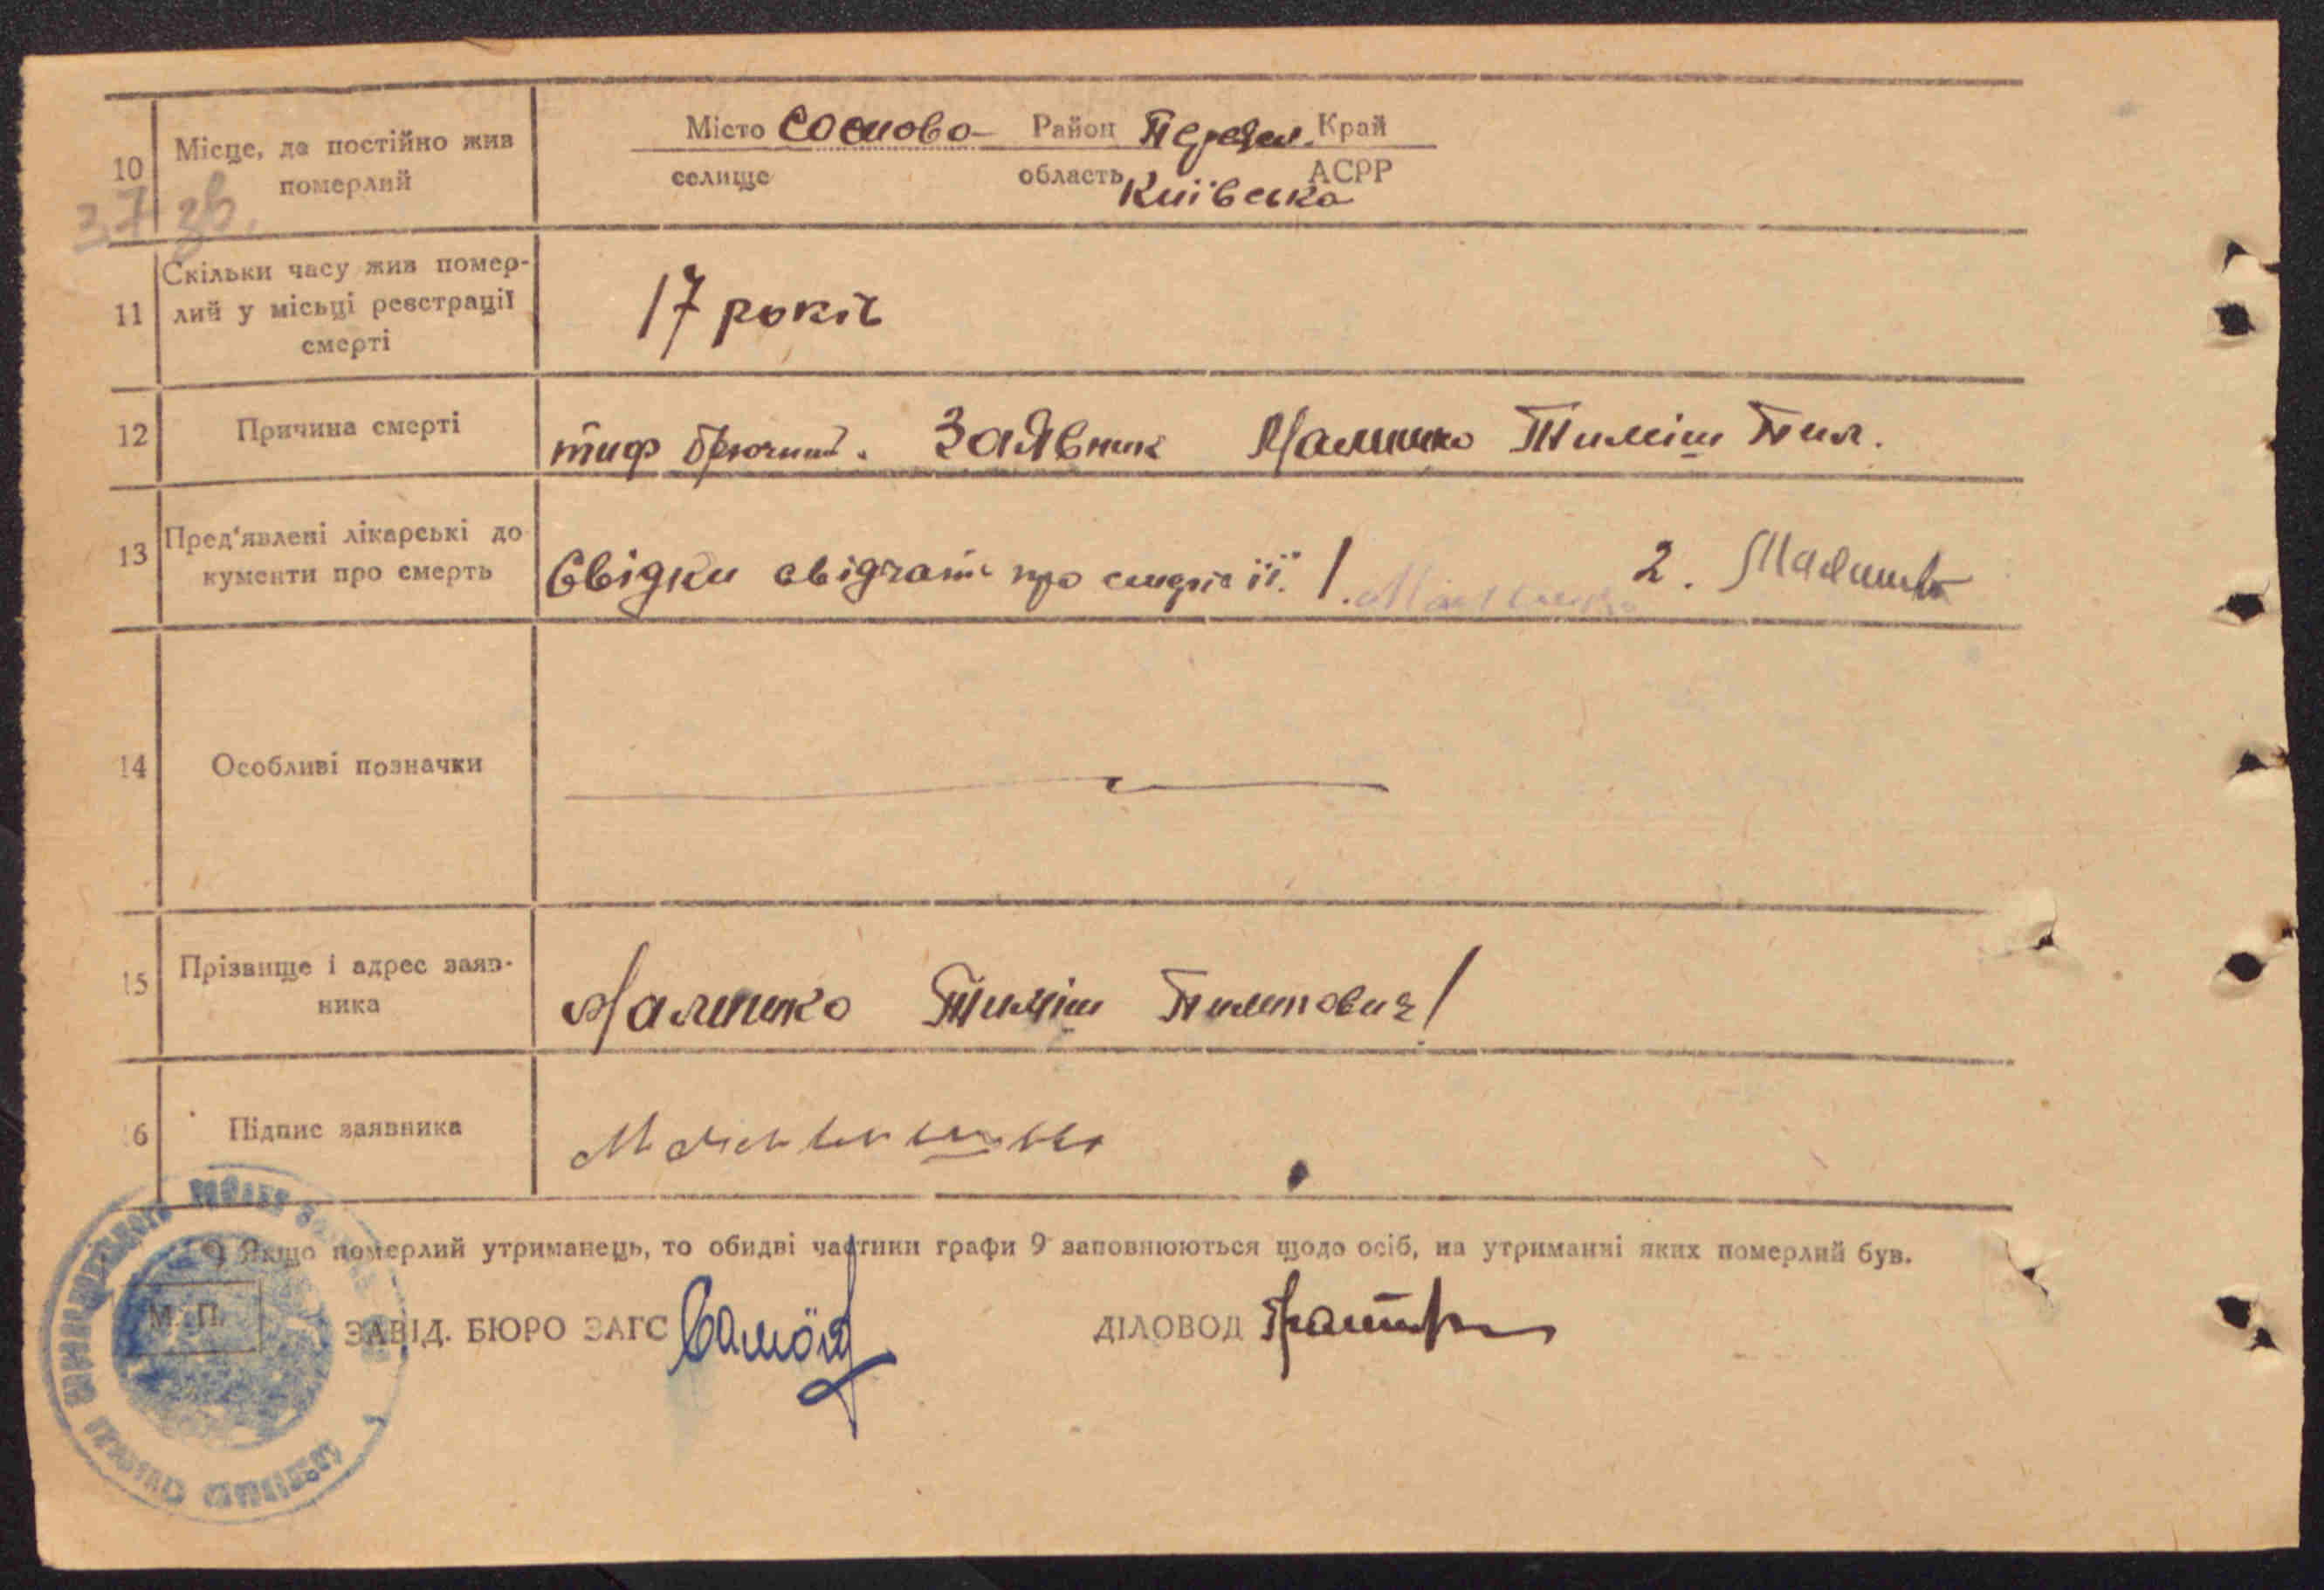 10 Місце, де постійно жив померлий
Місто Соснова Район Переясл. Край
селище область Київська АСРР
37 зв.
11 Скільки часу жив помер-
лий у місьці реєстрації
смерті
17 років
12 Причина смерті
тиф брючний. Заявник Малишко Тиміш Пил.
13 Пред'явлені лікарські до
кументи про смерть
Свідки свідчать про смерть її. 1. Малишко 2. Малишко
14 Особливі позначки
15 Прізвище і адрес заяв-
ника
Малишко Тиміш Пилипович
16 Підпис заявника
*) Якщо померлий утриманець, то обидві частини графи 9 заповнюються щодо осіб, на утриманні яких померлий був.
М. П.
ЗАВІД. БЮРО ЗАГС
ДІЛОВОД